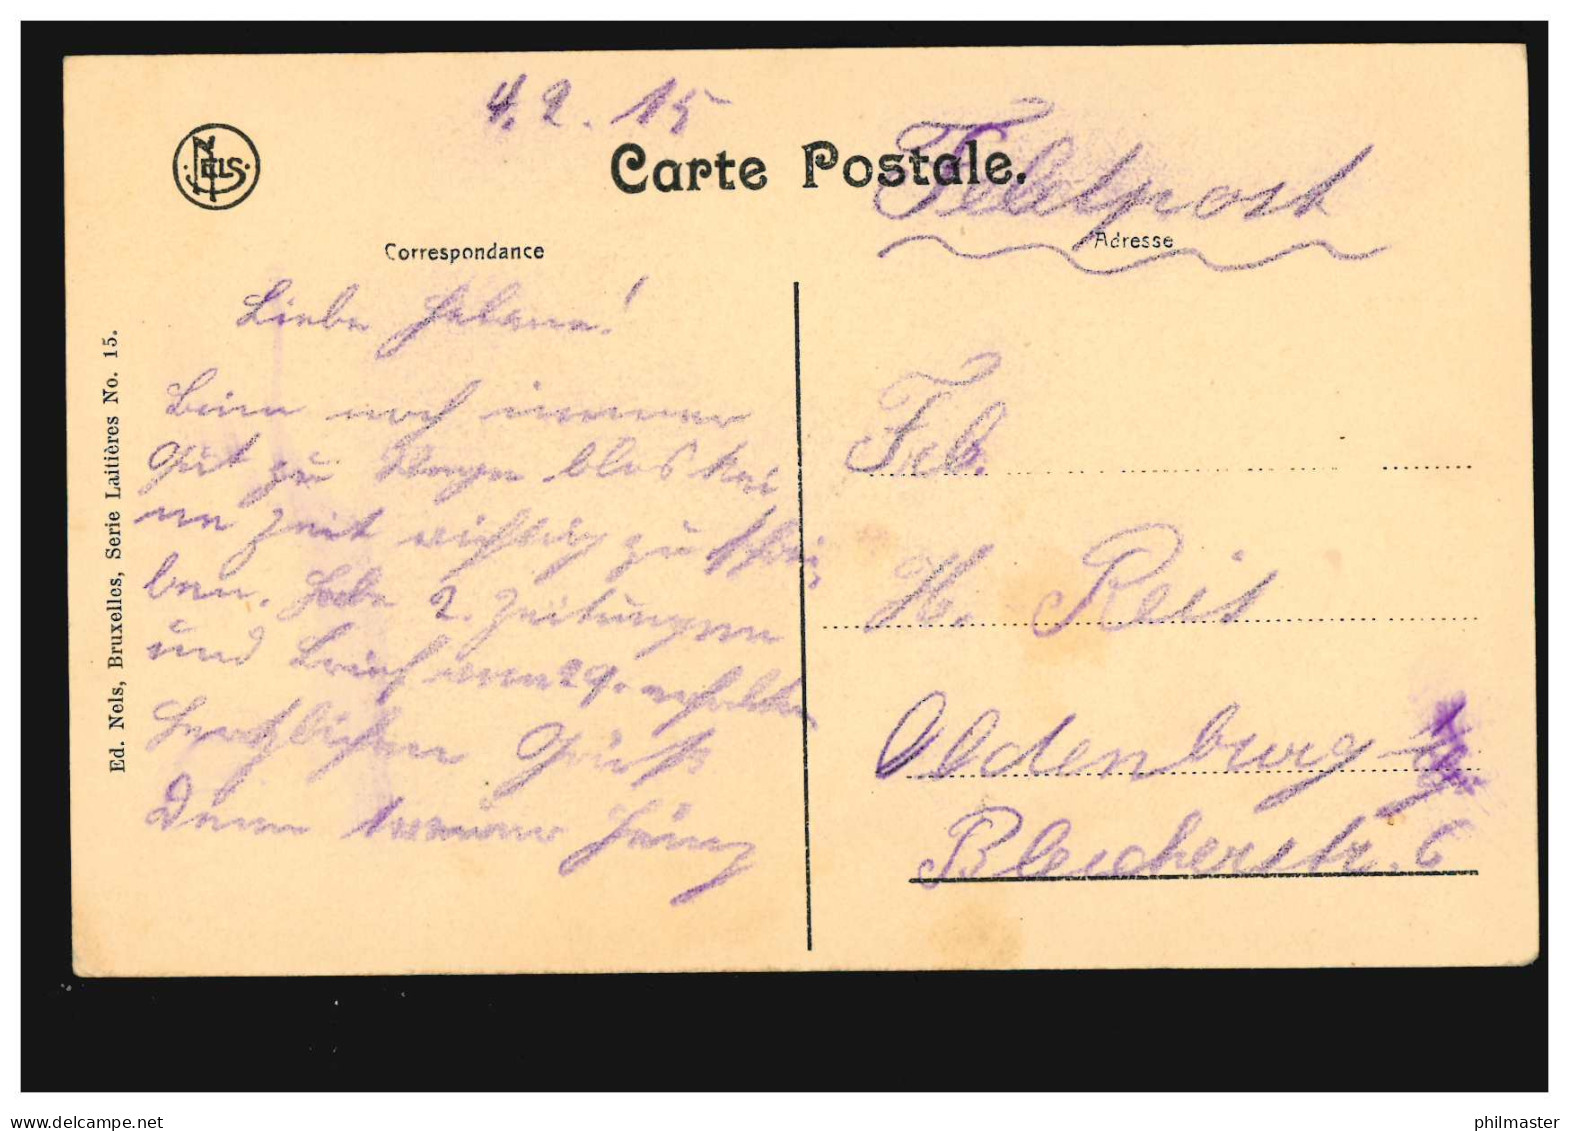 4.2.15
NELS
Carte Postale.
Feldpost
Correspondance
Adresse
Liebe Helene!
Bin noch immer
Gut zu Wege blos kei
ne Zeit richtig zu schrei
ben. Habe 2. Zeitungen
und Brief vom 29. erhalten
Herzlichen Gruß
Dein
Ed. Nels, Bruxelles, Serie Laitières No. 15.
H. Reis
Oldenburg
Bleicherstr. 6
hipday.com
philmaster